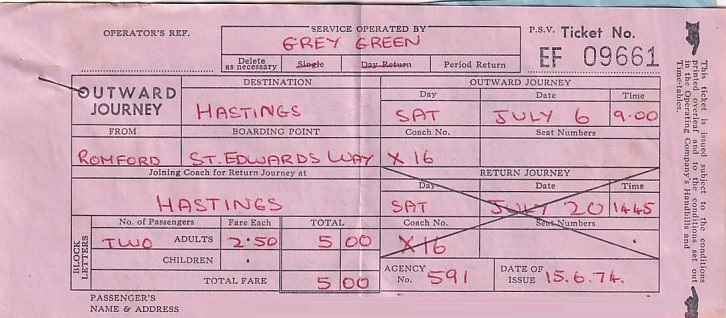 OPERATOR'S REF.
SERVICE OPERATED BY
GREY GREEN
P.S.V. Ticket No.
EF 09661
Delete as necessary Single Day Return Period Return
OUTWARD JOURNEY
DESTINATION
HASTINGS
OUTWARD JOURNEY
Day Date Time
SAT JULY 6 9.00
FROM BOARDING POINT
Coach No. Seat Numbers
ROMFORD ST. EDWARDS WAY X16
Joining Coach for Return Journey at
HASTINGS
RETURN JOURNEY
Day Date Time
SAT JULY 20 1445
Coach No. Seat Numbers
X16
BLOCK LETTERS
No. of Passengers Fare Each TOTAL
TWO ADULTS 2.50 5 00
CHILDREN .
TOTAL FARE 5 00
AGENCY No. 591
DATE OF ISSUE 15.6.74.
PASSENGER'S
NAME & ADDRESS
This ticket is issued subject to the conditions
printed overleaf and to the conditions set out
in the Operating Company's Handbills and
Time-tables.